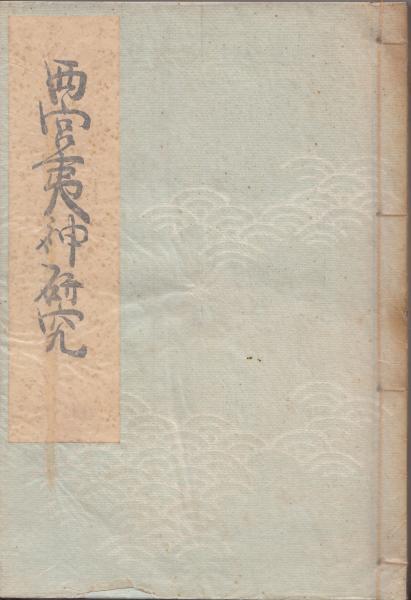 西宮夷神研究